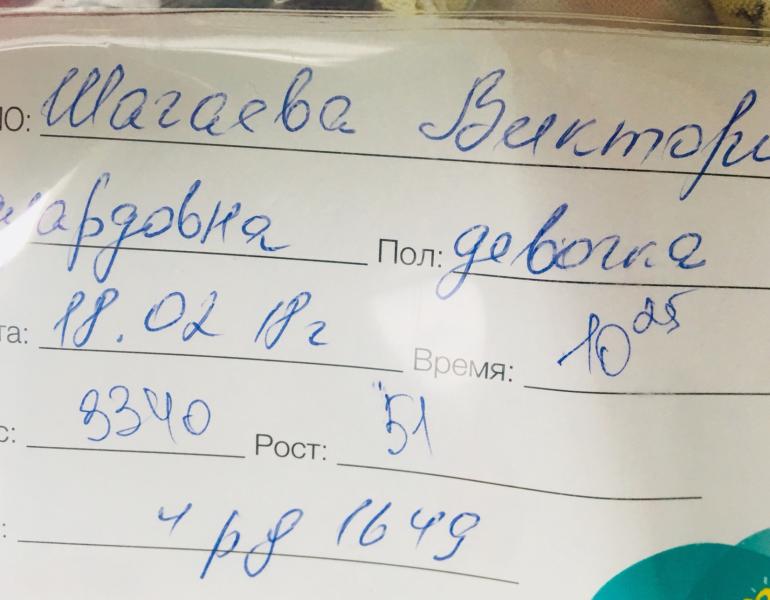 ИО: Шагаева Виктори
ардовна Пол: девочка
та: 18.02 18г Время: 10 25
с: 3340 Рост: 51
: ч рд 1649